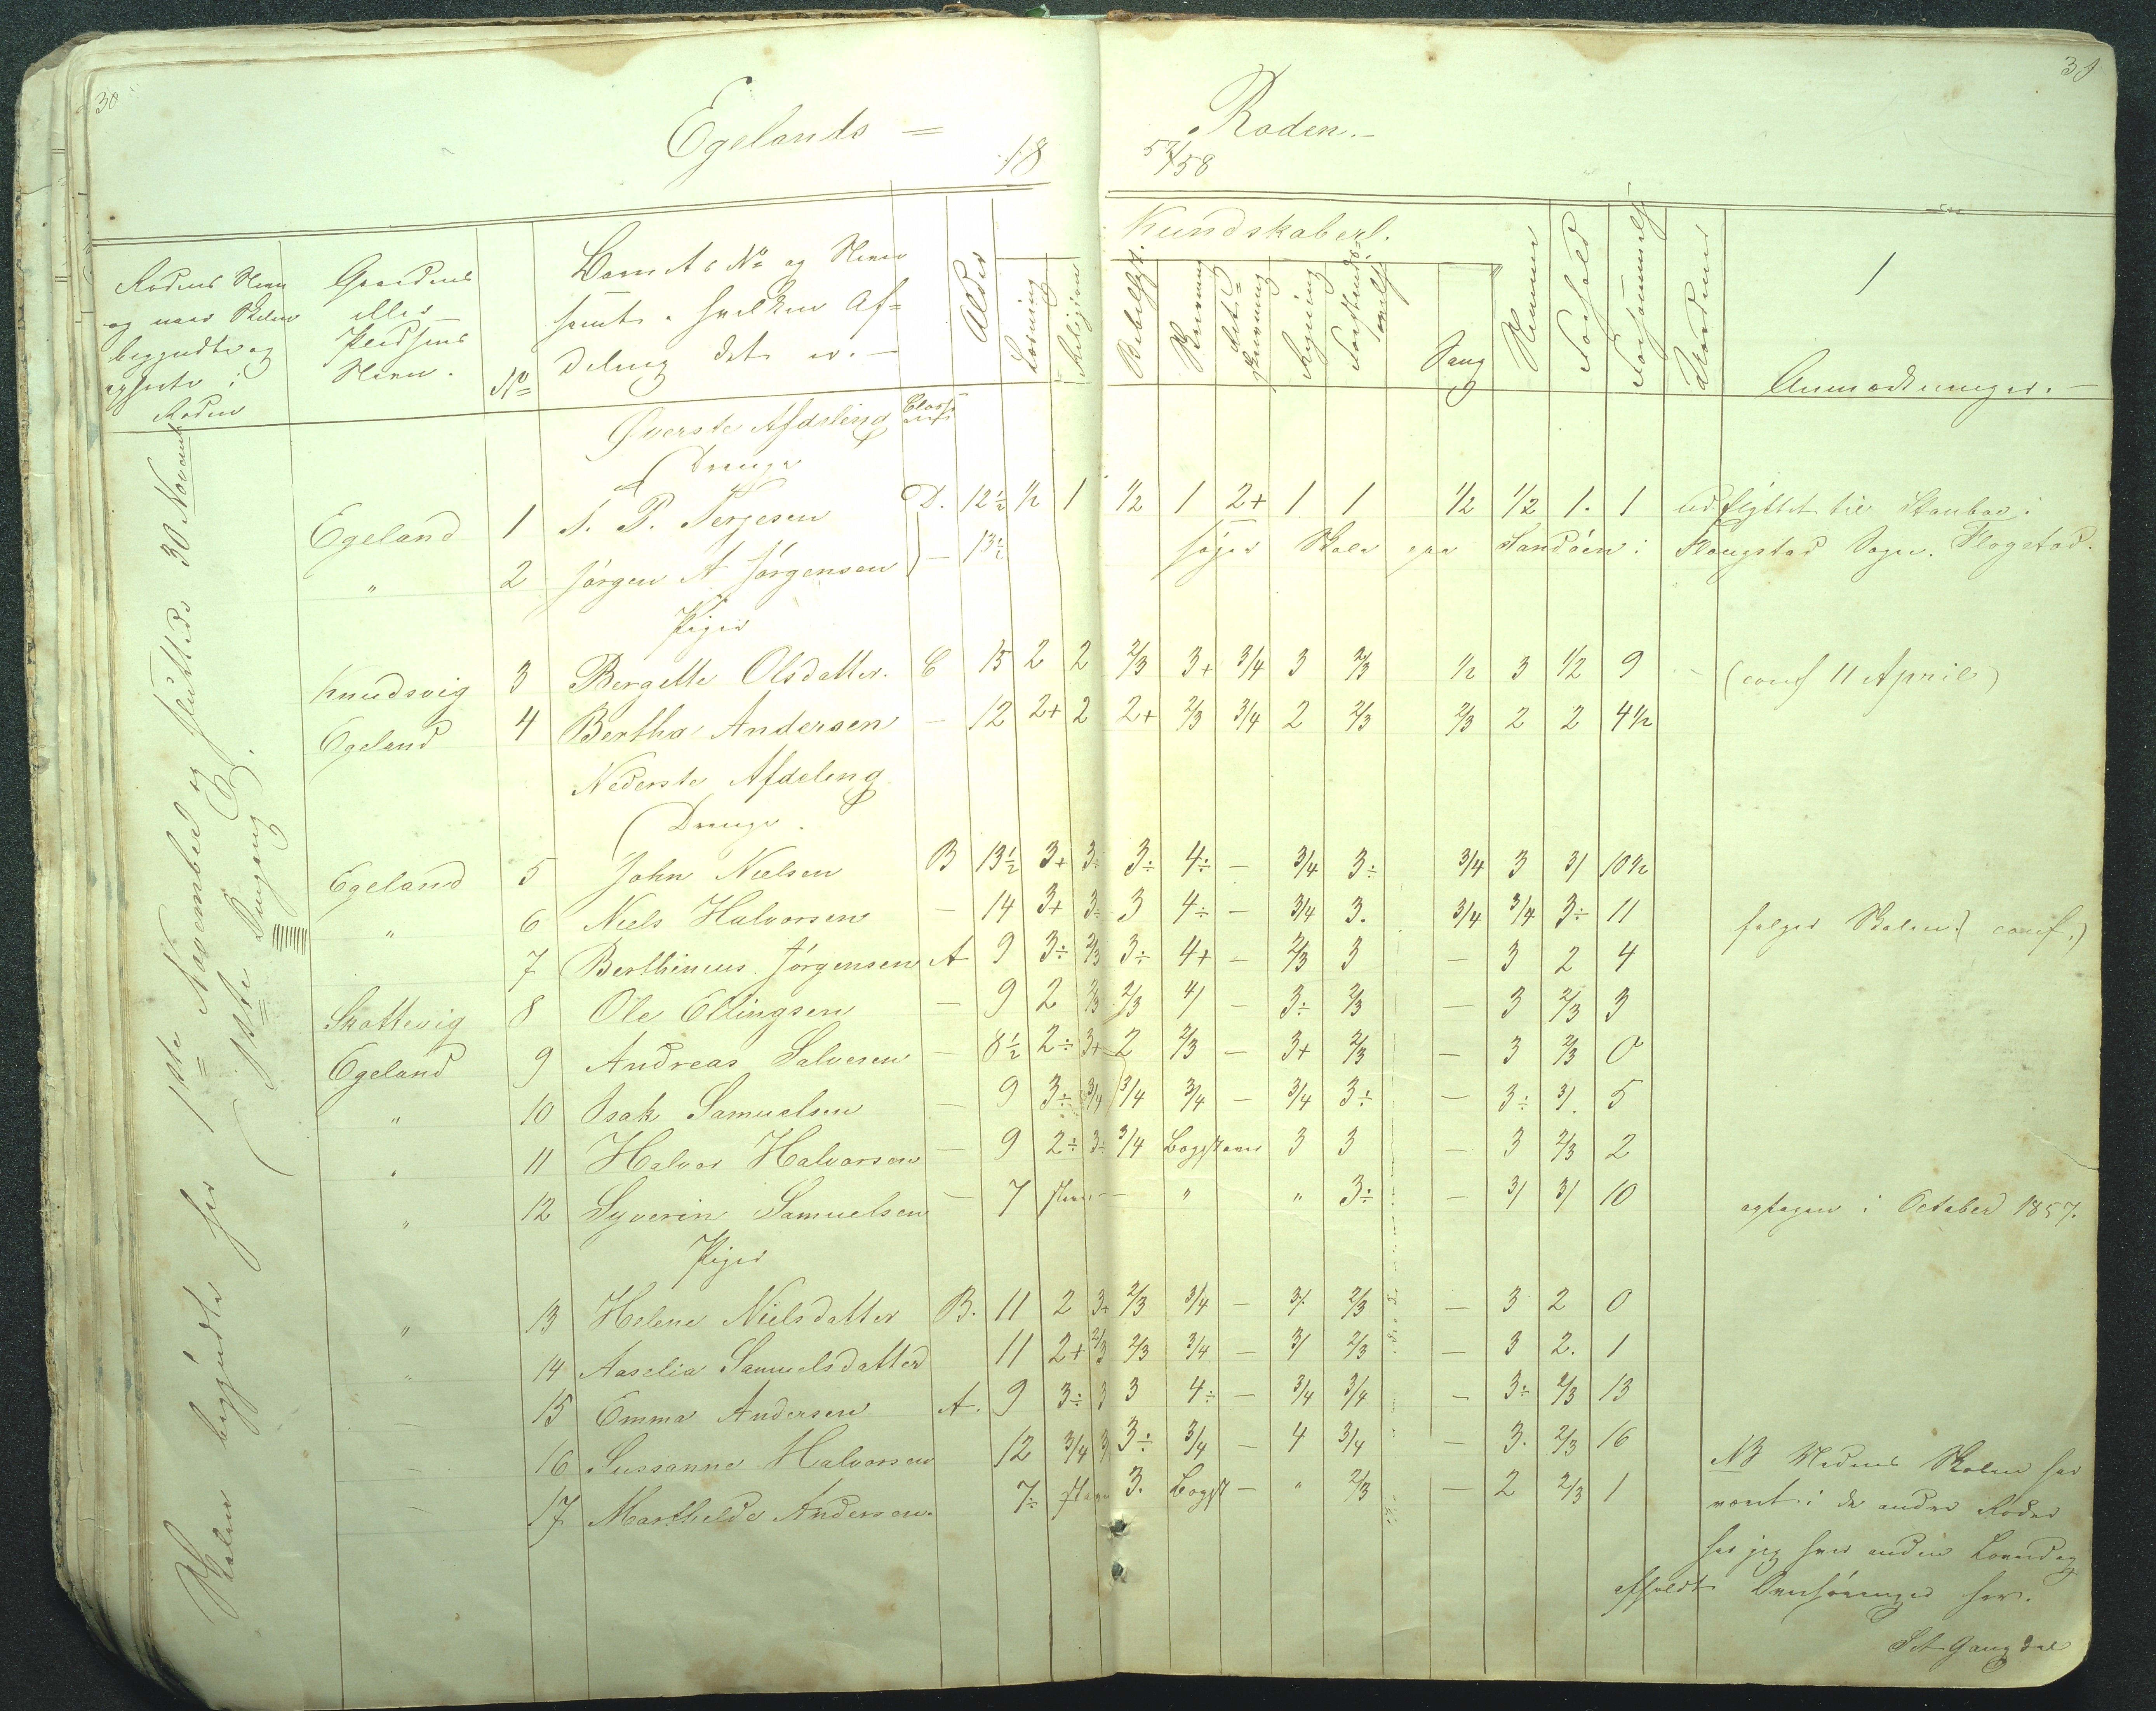 30
31
Egelands = Roden.-
18 57/58
Rodens Navn og naar Skolen begyndte og ophørte i Roden
Gaardens eller Pladsens Navn.
No
Barnets No og Navn samt i hvilken Afdeling det er.-
Alder
Kundskaber.
Læsning
Religion
Bibelhist.
Skrivning
Retskrivning
Regning
Sang
Nemme
Forhold
Anmærkninger.-
Skolen begyndte her 1ste November og sluttede 30 Novemb
1ste Omgang.
Øverste Afdeling Classe
Drenge
Egeland 1 T. P. Terjesen D. 12½ ½ 1 ½ 1 2+ 1 1 ½ ½ 1. 1 udflyttet til
" 2 Jørgen A Jørgensen - 13½ søger Skole paa Sandøen i Sogn. Flogstad.
Piger
Knudsvig 3 Bergette Olsdatter. C 15 2 2 2/3 3+ 3/4 3 2/3 ½ 3 ½ 9 - (conf 11 April)
Egeland 4 Bertha Andersen - 12 2+ 2 2+ 2/3 3/4 2 2/3 2/3 2 2 4½
Nederste Afdeling
Drenge.
Egeland 5 John Nielsen B 13½ 3+ 3÷ 3÷ 4÷ - 3/4 3÷ 3/4 3 3/ 10½
" 6 Niels Halvorsen - 14 3+ 3÷ 3 4÷ - 3/4 3. 3/4 3/4 3÷ 11 følger Skolen (conf.)
7 Berthineus Jørgensen A 9 3÷ 2/3 3÷ 4+ - 2/3 3 - 3 2 4
Skottevig 8 Ole Ellingsen - 9 2 2/3 2/3 4/ - 3÷ 2/3 - 3 2/3 3
Egeland 9 Andreas Salvesen - 8½ 2÷ 3+ 2 2/3 - 3+ 2/3 - 3 2/3 0
" 10 Isak Samuelsen - 9 3÷ 3/4 3/4 3/4 - 3/4 3÷ - 3÷ 3/. 5
" 11 Halvor Halvorsen - 9 2÷ 3÷ 3/4 Bogstaver 3 3 - 3 2/3 2
" 12 Syverin Samuelsen - 7 - " " 3÷ - 3/ 3/ 10 optagen i October 1857.
Piger
" 13 Helene Nielsdatter B. 11 2 3+ 2/3 3/4 - 3/. 2/3 - 3 2 0
" 14 Aaselia Samuelsdatter 11 2+ 2/3 2/3 3/4 - 3/ 2/3 - 3 2. 1
- 15 Emma Andersen A. 9 3÷ 3 3 4÷ - 3/4 3/4 - 3÷ 2/3 13
- 16 Sussanne Halvorsen 12 3/4 3/ 3÷ 3/4 - 4 3/4 - 3. 2/3 16
- 17 Marthelde Andersen. 7÷ 3. Bogst - " 2/3 - 2 2/3 1
NB Medens Skolen har
været i de andre Roder
har jeg hver anden Løverdag
afholdt Overhøringer her.